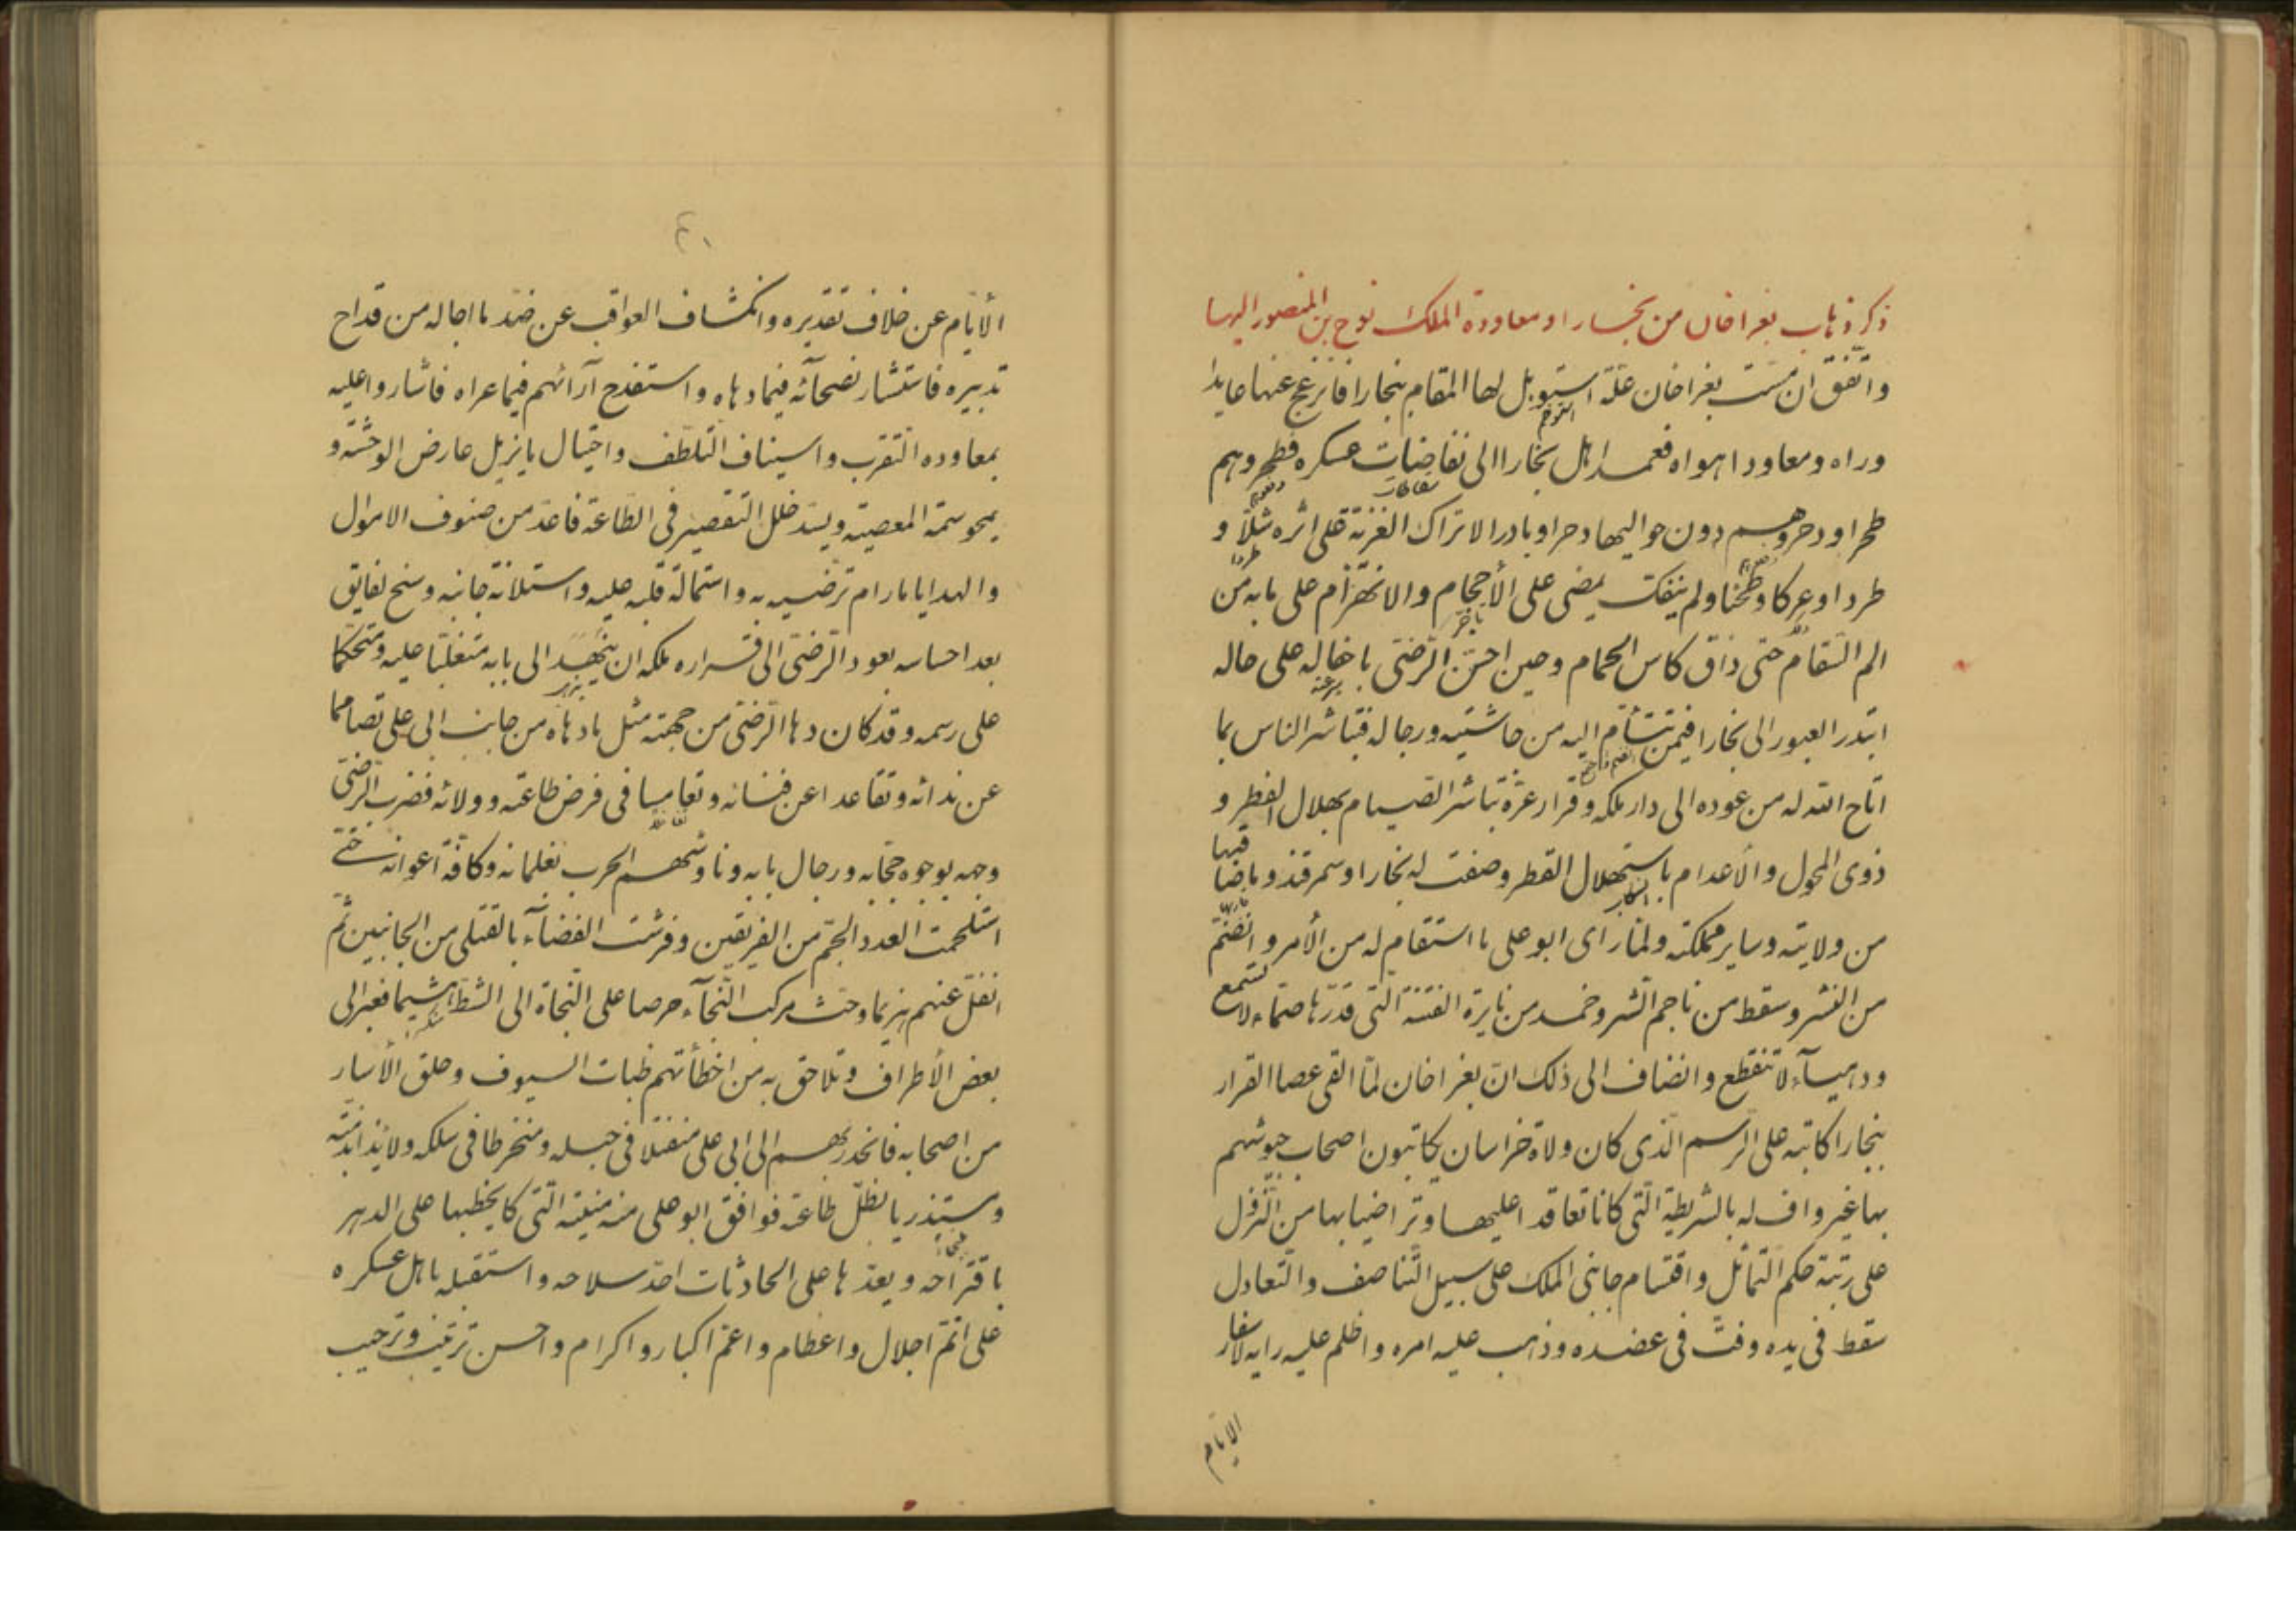 ذكر ذهاب بغراخان من بخارا ومعاودة الملك نوح بن المنصور اليها
واتّفق ان مسّت بغراخان علّة استوبل لها المقام ببخارا فانزعج عنها عايدا
استوخم
وراه ومعاودا هواه فعمد اهل بخارا الى نفاضات عسكره فطحروهم
طحرا ودحروهم دون حواليها دحرا وبادر الاتراك الغزيّة على اثره شلّا و
طردا وعركا وطحنا ولم ينفك يمضى على الأحجام والانهزام على ما به من
الم السّقام حتى ذاق كاس الحمام وحين احسّ الرّضىّ باخاله على حاله
ابتدر العبور الى بخارا فيمن تشأم اليه من حاشيته ورجاله فتباشر الناس بما
اتاح الله له من عوده الى دار ملكه وقرار عزّه تباشر الصيام بهلال الفطر و
ذوى المحول والأعدام باستهلال القطر وصفت له بخارا وسمرقند وما ضا
قبها
من ولايته وساير مملكته ولمّا راى ابو على ما استقام له من الأمر وانضمّ
من النشر وسقط من ناجم الشر وخمد من نايرة الفتنة الّتى قدّرها صمّاء لا تسمع
ودهيآء لا تنقطع وانضاف الى ذلك انّ بغراخان لمّا القى عصا القرار
ببخارا كاتبه على الرّسم الّذى كان ولاة خراسان يكاتبون اصحاب جيوشهم
بها غير واف له بالشريطة الّتى كانا تعاقدا عليها وتراضيا بها من النّزول
على رتبة حكم التماثل واقتسام جانبى الملك على سبيل التّناصف والتّعادل
سقط فى يده وفتّ فى عضده وذهب عليه امره واظلم عليه رايه لاسفار
الايّام
٤٠
الأيّام عن خلاف تقديره وانكشاف العواقب عن ضدّ ما اجاله من قداح
تدبيره فاستشار نصحآئه فيما دهاه واستقدح آرائهم فيما عراه فاشاروا عليه
بمعاوده التقرب واسيناف التّلطّف واحتيال ما يزيل عارض الوحشة و
يمحو سمة المعصية ويسدّ خلل التقصير فى الطّاعة فاعدّ من صنوف الاموال
والهدايا ما رام ترضّيه به واستمالة قلبه عليه واستلانة جانبه وسنح لفايق
بعد احساسه بعود الرّضىّ الى قراره ملكه ان ينهد الى بابه متغلّبا عليه ومتحكّما
على رسمه وقد كان دها الرّضىّ من جهته مثل ما دهاه من جانب ابى على تصامما
عن ندائه وتقاعدا عن فنائه وتعاميا فى فرض طاعته وولائه فضرب الرّضىّ
وجهه بوجوه حجابه ورجال بابه وناوشهم الحرب بغلمانه وكافّة اعوانه حتى
استلحمت العدد الجمّ من الفريقين وفرشت الفضآء بالقتلى من الجانبين ثمّ
انفلّ عنهم هزيما وحثّ مركب النّجآء حرصا على النجاة الى الشطّ هشيما فعبر الى
بعض الأطراف وتلاحق به من اخطأتهم ظبات السيوف وحلق الأسار
من اصحابه فانحدر بهم الى ابى على منفتلا فى حبله ومنخرطا فى سلكه ولايذا بذمّته
ومستذريا بظلّ طاعته فوافق ابو على منه منيته الّتى كا يخطبها على الدهر
باقتراحه ويعدّها على الحادثات احدّ سلاحه واستقبله باهل عسكره
على اتمّ اجلال واعظام واعمّ اكبار واكرام واحسن ترغيب وترحيب